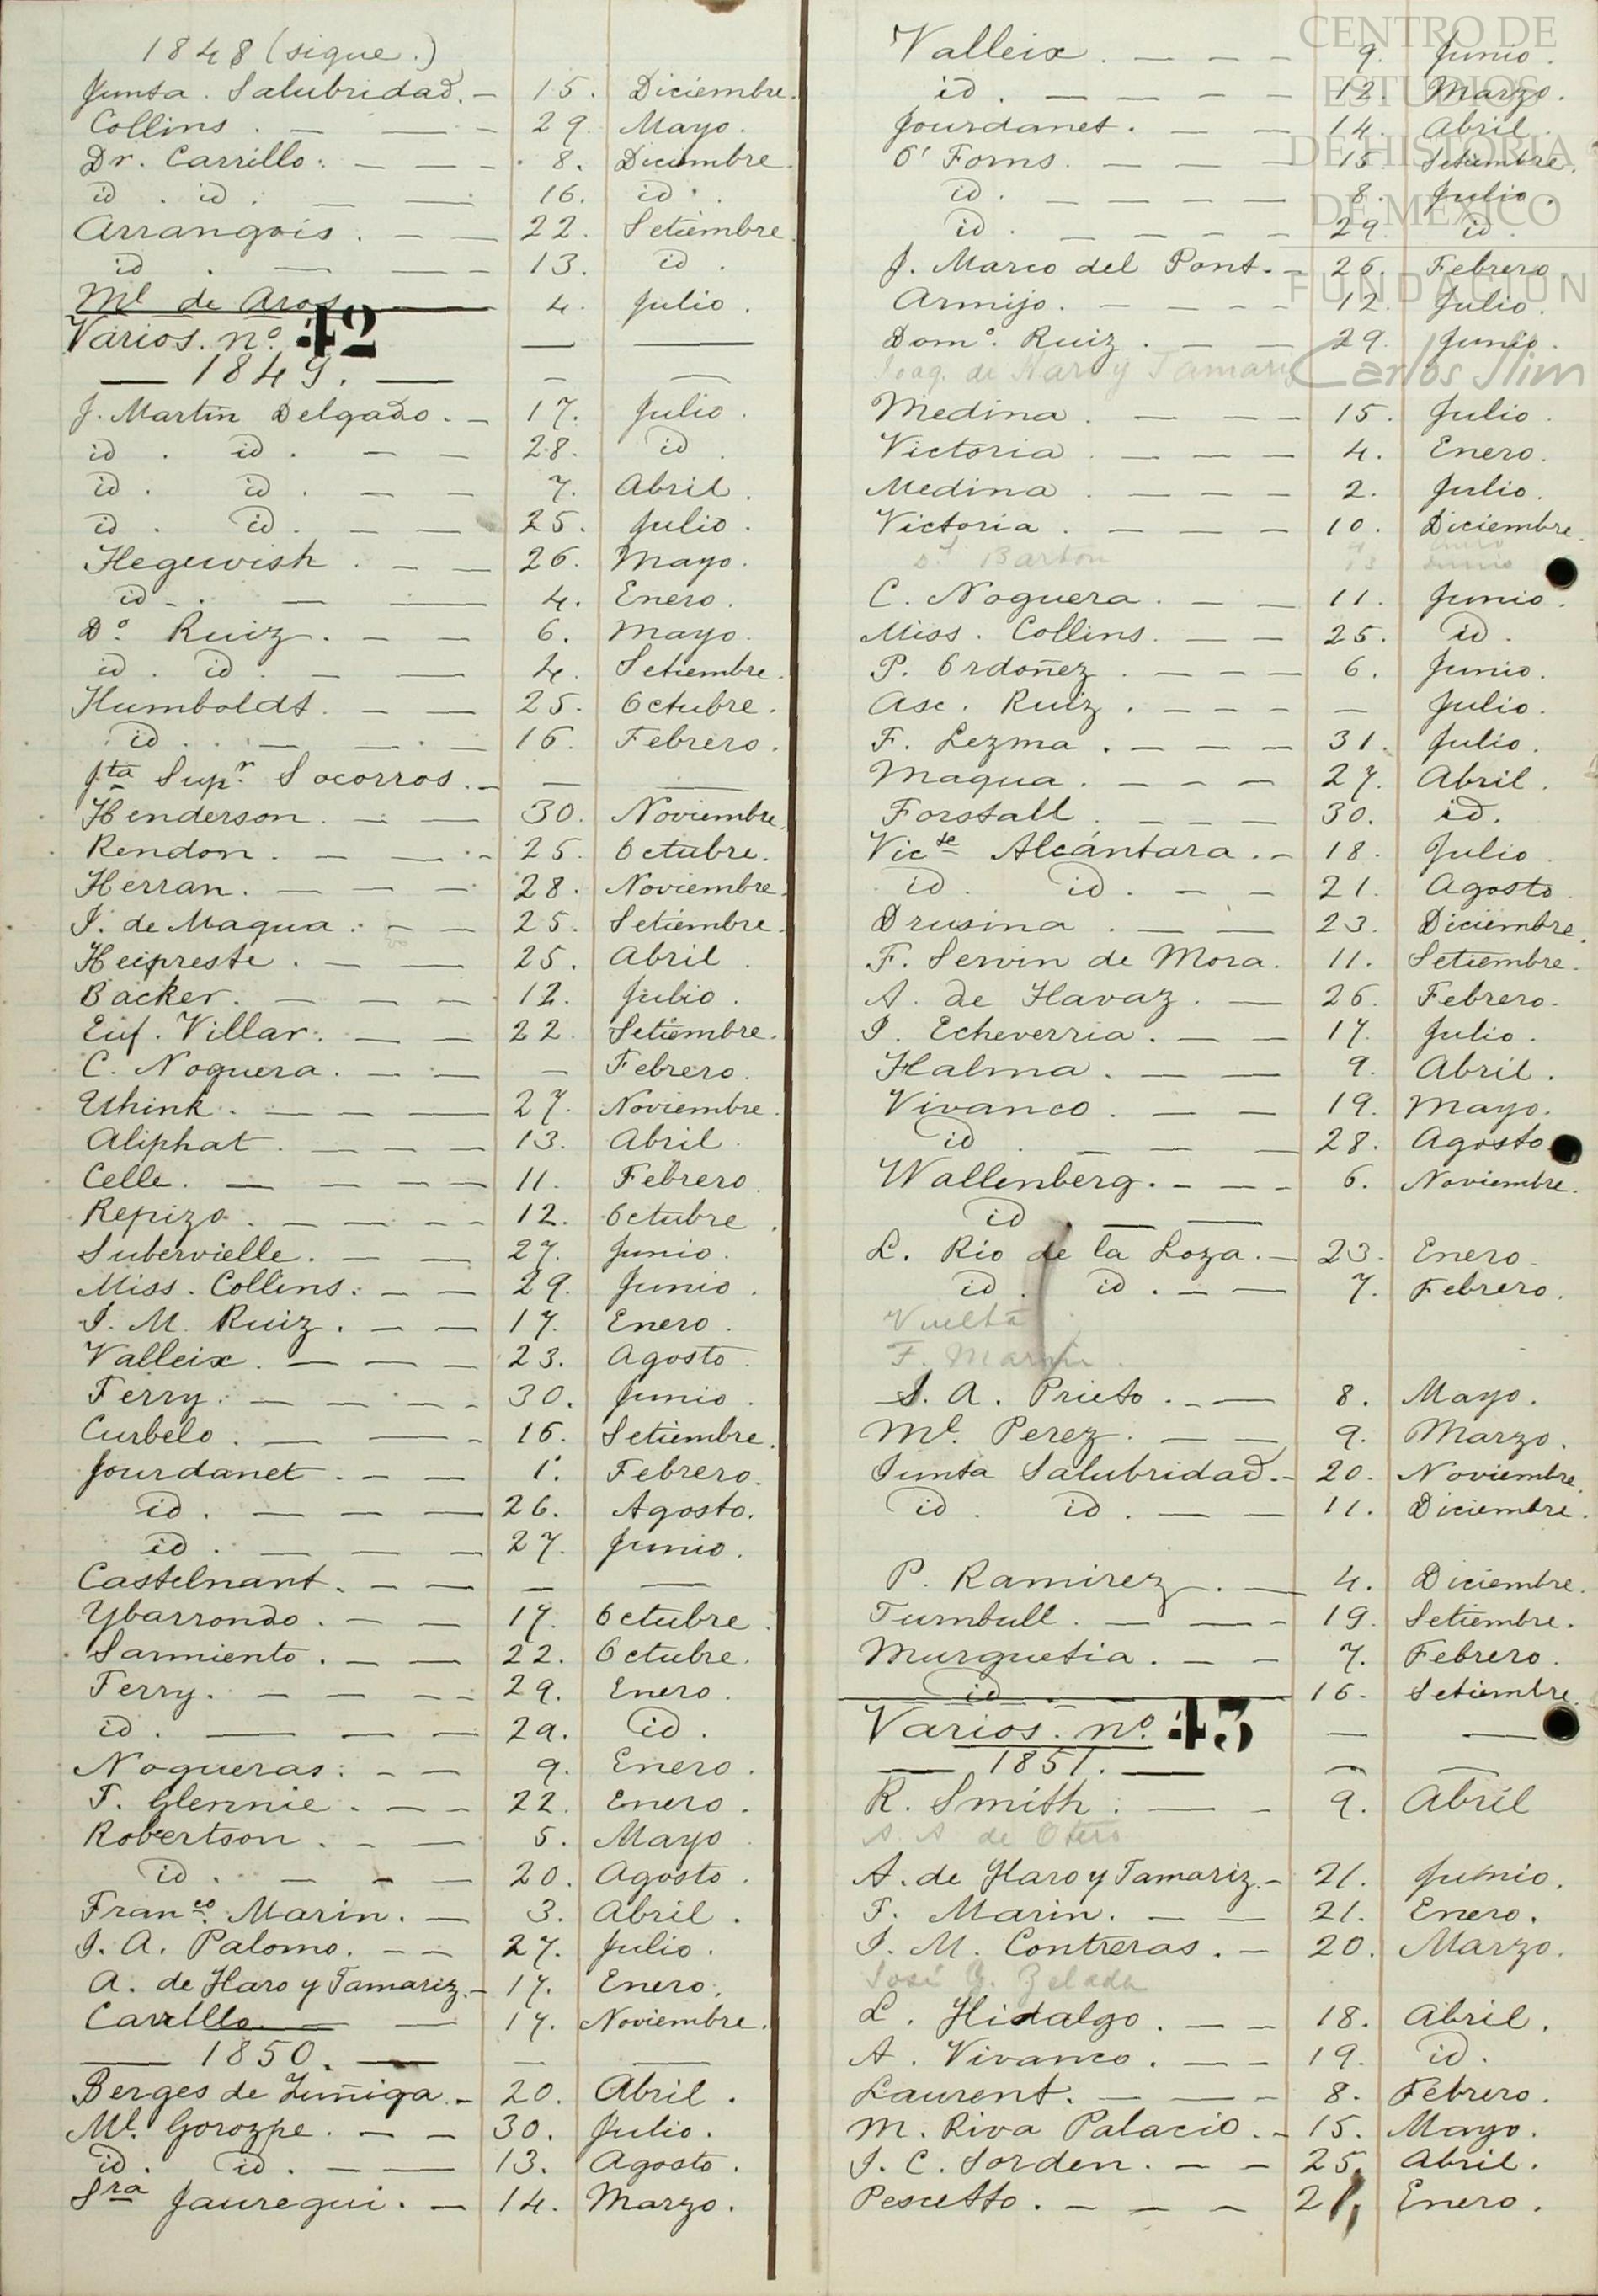 1848 (sigue.)
Junta. Salubridad. — 15. Diciembre.
Collins. — — — 29. Mayo.
Dr. Carrillo. — — — 8. Diciembre.
id. id. — — 16. id.
Arrangois. — — 22. Setiembre.
id. — — — 13. id.
Ml de Aros — 4. Julio.
Varios. no. 42 — —
— 1849. — — —
J. Martin Delgado. — 17. Julio.
id. id. — — 28. id.
id. id. — — 7. Abril.
id. id. — — 25. Julio.
Hegewish. — — 26. Mayo.
id. — — 4. Enero.
Do. Ruiz. — — 6. Mayo.
id. id. — — 4. Setiembre.
Humboldt. — — 25. Octubre.
id. — — — 16. Febrero.
Jta Supr. Socorros. — — —
Henderson. — — 30. Noviembre.
Rendon. — — — 25. Octubre.
Herran. — — — 28. Noviembre.
I. de Maqua. — — 25. Setiembre.
Heipreste. — — 25. Abril.
Backer. — — — 12. Julio.
Euf. Villar. — — 22. Setiembre.
C. Noguera. — — — Febrero.
Uhink. — — — 27. Noviembre.
Aliphat. — — — 13. Abril.
Celle. — — — — 11. Febrero.
Repizo. — — — — 12. Octubre.
Subervielle. — — — 27. Junio.
Miss. Collins. — — 29. Junio.
I. M. Ruiz. — — 17. Enero.
Valleix. — — — 23. Agosto.
Ferry. — — — — 30. Junio.
Curbelo. — — — 16. Setiembre.
Jourdanet. — — 1. Febrero.
id. — — — 26. Agosto.
id. — — — 27. Junio.
Castelnant. — — — —
Ybarrondo. — — 17. Octubre.
Sarmiento. — — 22. Octubre.
Ferry. — — — — 29. Enero.
id. — — — 29. id.
Nogueras. — — 9. Enero.
F. Glennie. — — 22. Enero.
Robertson. — — 5. Mayo
id. — — — 20. Agosto.
Franco. Marin. — 3. Abril.
I. A. Palomo. — — 27. Julio.
A. de Haro y Tamariz. — 17. Enero.
Carillo. — — 17. Noviembre.
— 1850. — — —
Berges de Zuñiga. — 20. Abril.
Ml. Gorozpe. — — 30. Julio.
id. id. — — 13. Agosto.
Sra Jauregui. — 14. Marzo.
Valleix. — — — 9. Junio.
id. — — — — 12. Marzo.
Jourdanet. — — 14. Abril.
O' Forns. — — — 15. Setiembre.
id. — — — — 8. Julio.
id. — — — — 29. id.
J. Marco del Pont. — 26. Febrero.
Armijo. — — — 12. Julio.
Domo. Ruiz. — — 29. Junio.
Joaq. de Haro y Tamariz
Medina. — — — 15. Julio.
Victoria. — — — 4. Enero.
Medina. — — — 2. Julio.
Victoria. — — — 10. Diciembre.
Barton
C. Noguera. — — 11. Junio.
Miss. Collins. — — 25. id.
P. Ordoñez. — — — 6. Junio.
Asc. Ruiz. — — — — Julio.
F. Lezma. — — — 31. Julio.
Maqua. — — — 27. Abril.
Forstall. — — — 30. id.
Victe Alcántara. — 18. Julio
id. id. — — 21. Agosto
Drusina. — — 23. Diciembre.
F. Servin de Mora. 11. Setiembre.
A. de Havaz. — 26. Febrero.
I. Echeverria. — — 17. Julio.
Halma. — — 9. Abril.
Vivanco. — — 19. Mayo.
id. — — 28. Agosto
Wallenberg. — — — 6. Noviembre.
id. — —
L. Rio de la Loza. — 23. Enero.
id. id. — — 7. Febrero.
Vuelta
F. Marin.
I. A. Prieto. — — 8. Mayo.
Ml. Perez. — — 9. Marzo.
Junta Salubridad. — 20. Noviembre.
id. id. — — 11. Diciembre.
P. Ramirez. — 4. Diciembre.
Turnbull. — — — 19. Setiembre.
Murguetia. — — 7. Febrero.
id. 16. Setiembre.
Varios. no. 43 — —
— 1851. — — —
R. Smith. — — 9. Abril
A. A. de Otero
A. de Haro y Tamariz. — 21. Junio.
F. Marin. — — 21. Enero.
I. M. Contreras. — 20. Marzo.
José Zelada
L. Hidalgo. — — 18. Abril.
A. Vivanco. — — 19. id.
Laurent. — — — 8. Febrero.
M. Riva Palacio. — 15. Mayo.
I. C. Sorden. — — 25. Abril.
Pescetto. — — — 21, Enero.
CENTRO DE
ESTUDIOS
DE HISTORIA
DE MÉXICO
FUNDACIÓN
Carlos Slim